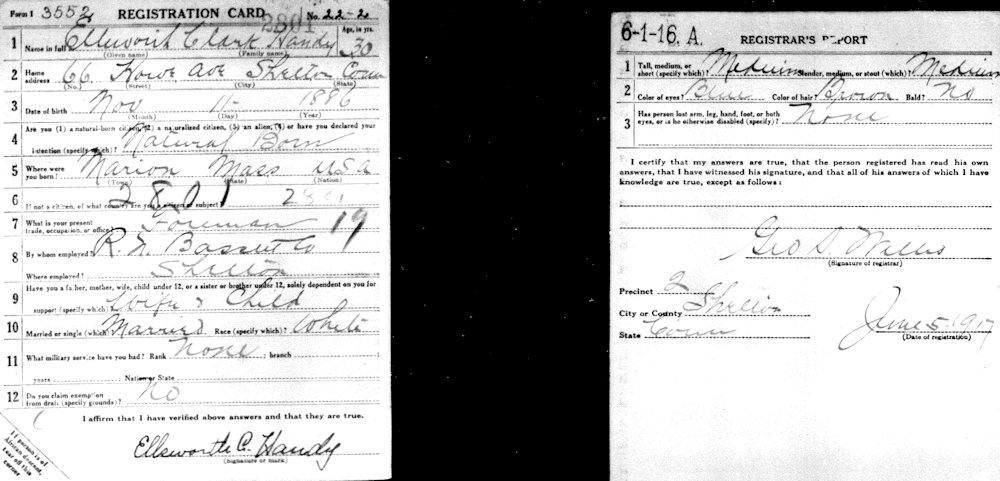 Form 1 3552 REGISTRATION CARD 2801 No. 22-2
Age, in yrs.
1 Name in full Ellsworth Clark Handy 30
(Given name) (Family name)
2 Home address 66 Howe Ave Shelton Conn
(No.) (Street) (City) (State)
3 Date of birth Nov 11 1886
(Month) (Day) (Year)
4 Are you (1) a natural-born citizen, (2) a naturalized citizen, (3) an alien, (4) or have you declared your
intention (specify which)? Natural Born
5 Where were you born? Marion Mass USA
(Town) (State) (Nation)
6 If not a citizen, of what country are you a citizen or subject? 2801
7 What is your present trade, occupation, or office? Foreman 19
8 By whom employed? R. N. Bassett Co
Where employed? Shelton
9 Have you a father, mother, wife, child under 12, or a sister or brother under 12, solely dependent on you for
support (specify which)? Wife & Child
10 Married or single (which)? Married Race (specify which)? White
11 What military service have you had? Rank None ; branch
years ; Nation or State
12 Do you claim exemption from draft (specify grounds)? No
I affirm that I have verified above answers and that they are true.
Ellsworth C. Handy
(Signature or mark)
If person is of
African descent,
tear off this
corner
6-1-16. A. REGISTRAR'S REPORT
1 Tall, medium, or short (specify which)? Medium Slender, medium, or stout (which)? Medium
2 Color of eyes? Blue Color of hair? Brown Bald? No
3 Has person lost arm, leg, hand, foot, or both
eyes, or is he otherwise disabled (specify)? None
I certify that my answers are true, that the person registered has read his own
answers, that I have witnessed his signature, and that all of his answers of which I have
knowledge are true, except as follows:
Geo S. Willis
(Signature of registrar)
Precinct 2
City or County Shelton
State Conn June 5 - 1917
(Date of registration)